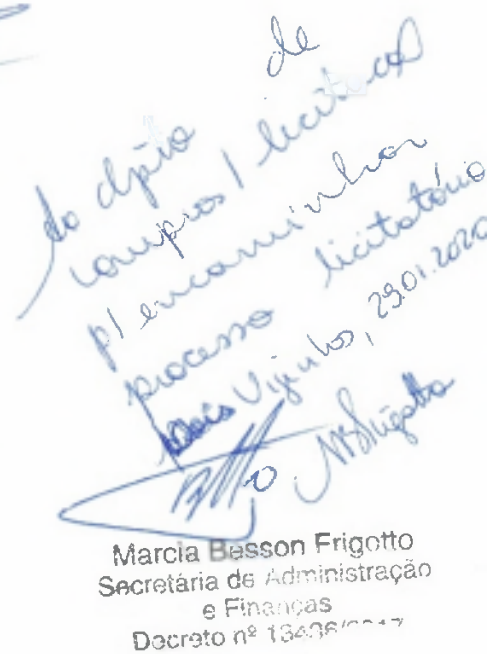 Ao dpto de
compras / licitação
p/ encaminhar
processo licitatório
Dois Vizinhos, 29.01.2020
MBFrigotto
Marcia Besson Frigotto
Secretária de Administração
e Finanças
Decreto nº